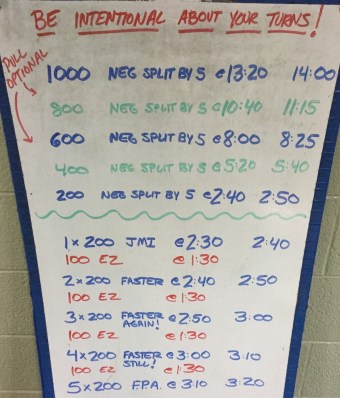 BE INTENTIONAL ABOUT YOUR TURNS!
PULL OPTIONAL
1000 NEG SPLIT BY 5 @ 13:20 14:00
800 NEG SPLIT BY 5 @ 10:40 11:15
600 NEG SPLIT BY 5 @ 8:00 8:25
400 NEG SPLIT BY 5 @ 5:20 5:40
200 NEG SPLIT BY 5 @ 2:40 2:50
1 x 200 JMI @ 2:30 2:40
100 EZ @ 1:30
2 x 200 FASTER @ 2:40 2:50
100 EZ @ 1:30
3 x 200 FASTER AGAIN! @ 2:50 3:00
100 EZ @ 1:30
4 x 200 FASTER STILL! @ 3:00 3:10
100 EZ @ 1:30
5 x 200 F.P.A. @ 3:10 3:20